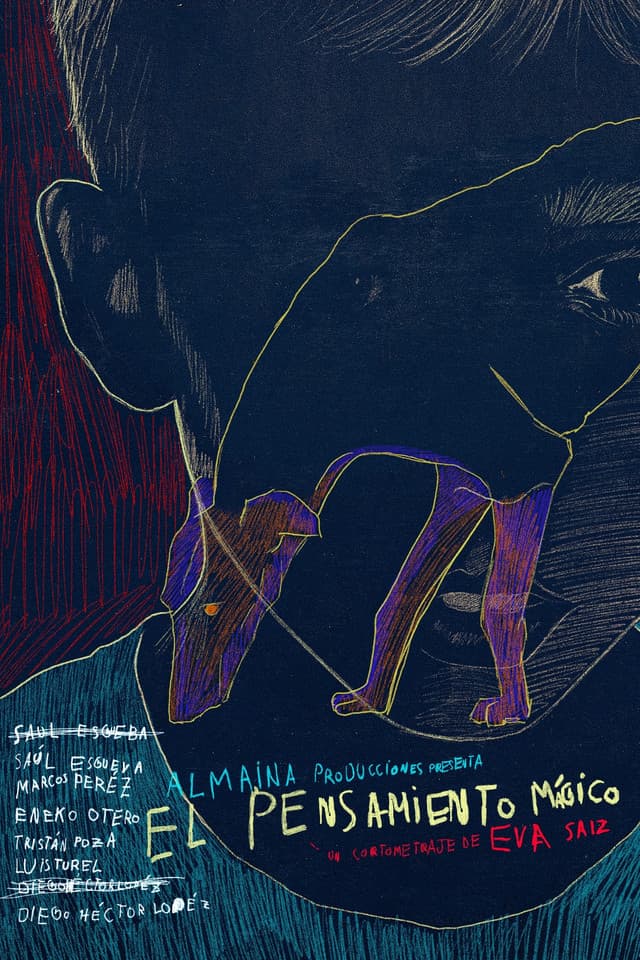 SAUL ESGUEBA
SAÚL ESGUEVA
MARCOS PERÉZ
ENEKO OTERO
TRISTÁN POZA
LUISTUREL
DIEGO HÉCTOR LOPÉZ
DIEGO HÉCTOR LOPÉZ
ALMAINA PRODUCCIONES PRESENTA
EL PENSAMIENTO MÁGICO
UN CORTOMETRAJE DE EVA SAIZ